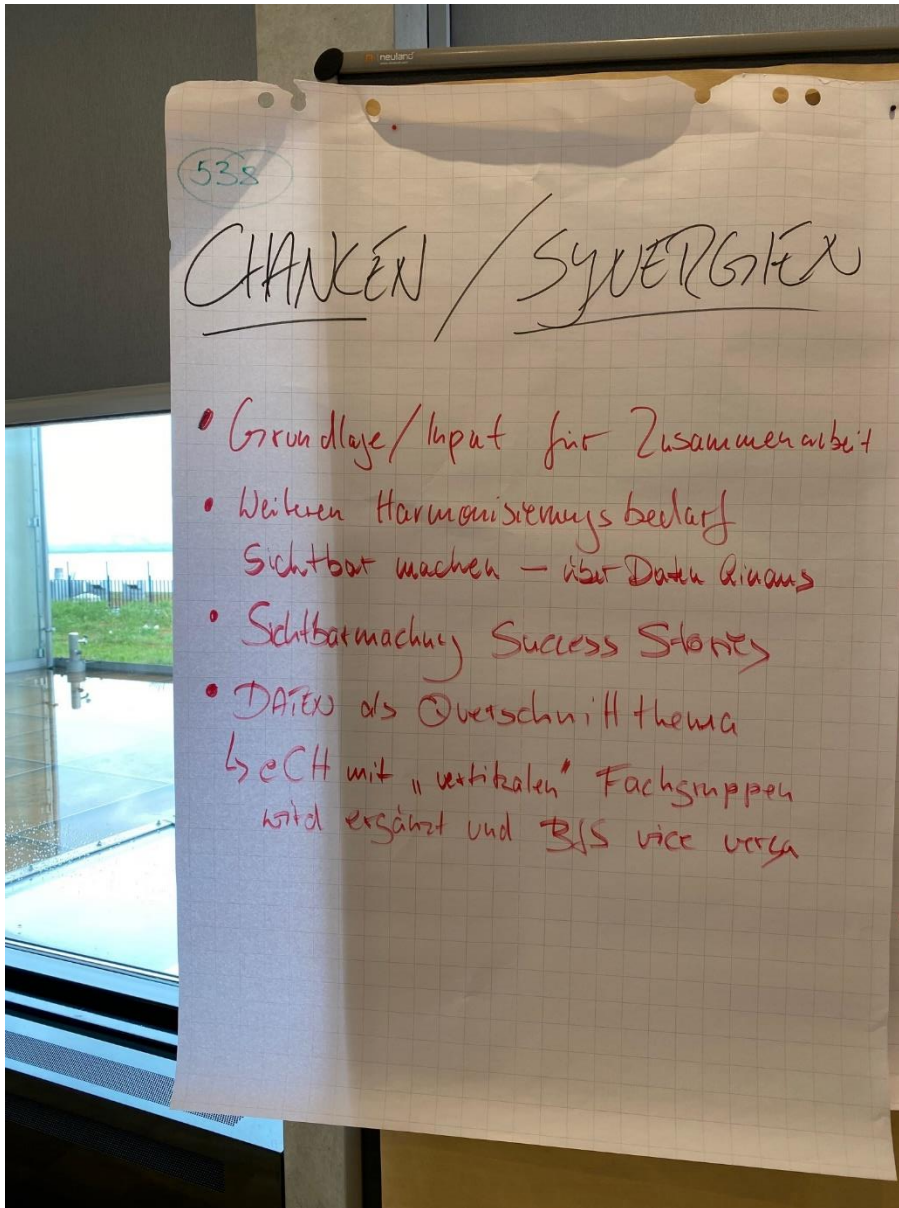 neuland
538
CHANCEN / SYNERGIEN
• Grundlage/Input für Zusammenarbeit
• Weiteren Harmonisierungsbedarf
Sichtbar machen – über Daten hinaus
• Sichtbarmachung Success Stories
• DATEN als Querschnittthema
↳ eCH mit „vertikalen" Fachgruppen
wird ergänzt und BfS vice versa